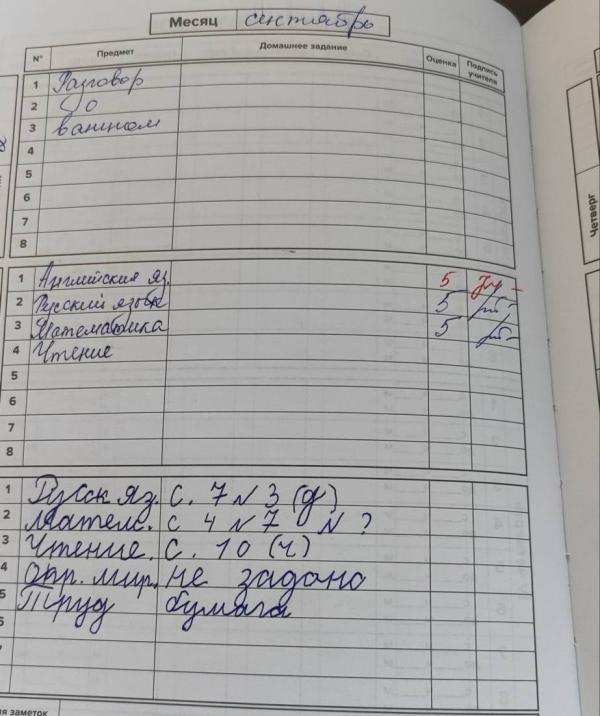 Месяц сентябрь
№ Предмет Домашнее задание Оценка Подпись учителя
1 Разговор
2 о
3 важном
4
5
6
7
8
1 Английския яз. 5
2 Русский язык 5
3 Математика 5
4 Чтение
5
6
7
8
1 Русск яз. с. 7 № 3 (у)
2 Матем. с 4 № 7 № ?
3 Чтение. с. 10 (ч)
4 окр. мир. не задано
5 Труд бумага
6
я заметок
Четверг